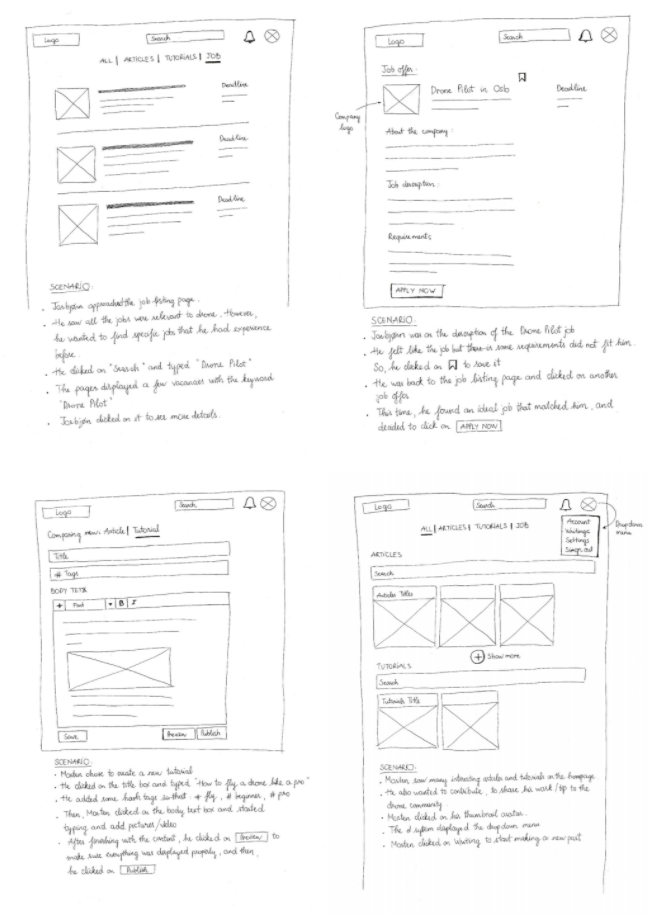 Logo
Search
ALL | ARTICLES | TUTORIALS | JOB
Deadline
Deadline
Deadline
SCENARIO:
approached the job listing page.
He saw all the jobs were relevant to drone. However,
he wanted to find specific jobs that he had experience
before.
He clicked on "Search" and typed "Drone Pilot"
The pages displayed a few vacancies with the keyword
"Drone Pilot"
clicked on it to see more details.
Logo
Search
Job offer:
Drone Pilot in Oslo
Deadline
Company
logo
About the company:
Job description:
Requirements
APPLY NOW
SCENARIO:
was on the description of the Drone Pilot job
He felt like the job but there is some requirements did not fit him.
So, he clicked on to save it
He was back to the job listing page and clicked on another
job offer
This time, he found an ideal job that matched him, and
decided to click on APPLY NOW
Logo
Search
Composing new: Article | Tutorial
Title
# Tags
BODY TEXT
+ Font B I
Save
Preview
Publish
SCENARIO:
Morten chose to create a new tutorial
He clicked on the title box and typed "How to fly a drone like a pro"
He added some hash tags such as # fly, # beginner, # pro
Then, Morten clicked on the body text box and started
typing and add pictures/video
After finishing with the content, he clicked on Preview to
make sure everything was displayed properly, and then,
he clicked on Publish
Logo
Search
ALL | ARTICLES | TUTORIALS | JOB
Account
Writings
Settings
Sign out
Dropdown
menu
ARTICLES
Search
Articles Titles
+ Show more
TUTORIALS
Search
Tutorials Title
SCENARIO:
Morten saw many interesting articles and tutorials on the homepage
He also wanted to contribute, to share his work/tip to the
drone community
Morten clicked on his thumbnail avatar.
The system displayed the dropdown menu
Morten clicked on Writing to start making a new post